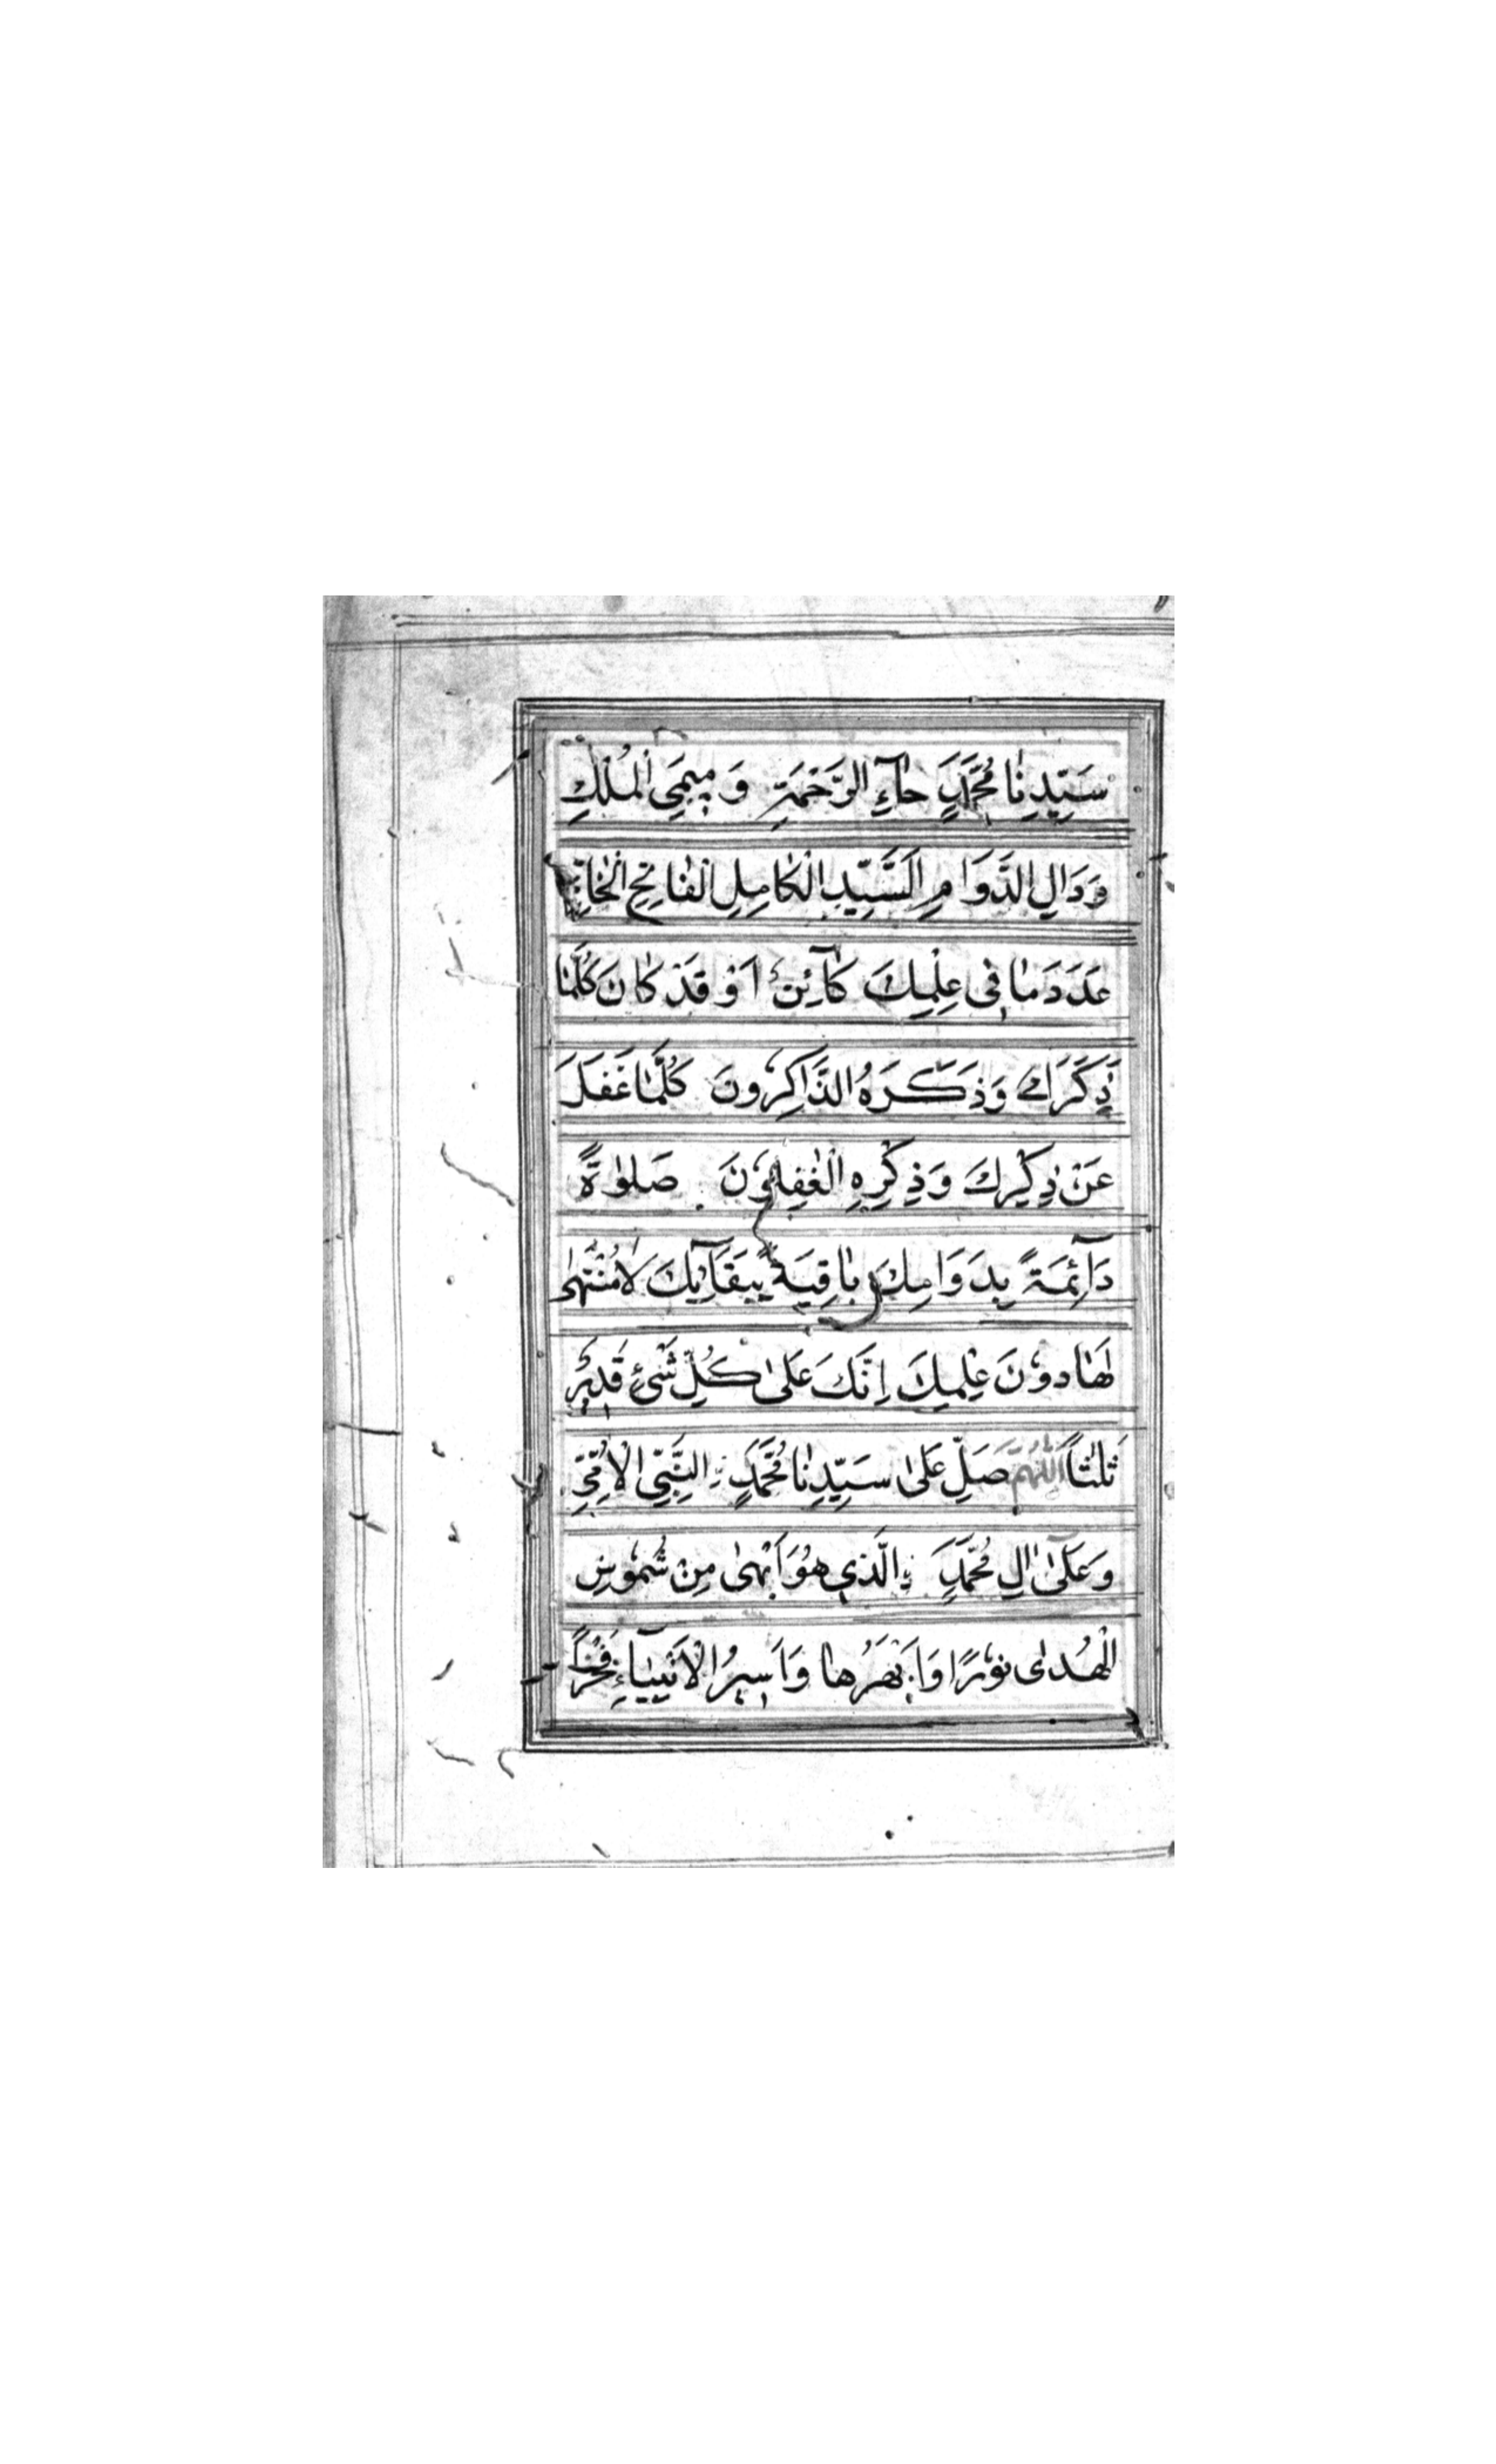 سَيِّدِنَا مُحَمَّدٍ حَآءِ الرَّحْمَةِ وَ مِيمَيِ الْمُلْكِ
وَدَالِ الدَّوَامِ السَّيِّدِ الْكَامِلِ الْفَاتِحِ الْخَاتِمِ
عَدَدَ مَا فِي عِلْمِكَ كَآئِنٌ اَوْ قَدْ كَانَ كُلَّمَا
ذَكَرَكَ وَذَكَرَهُ الذَّاكِرُونَ كُلَّمَا غَفَلَ
عَنْ ذِكْرِكَ وَذِكْرِهِ الْغٰفِلُوْنَ صَلٰوةً
دَآئِمَةً بِدَوَامِكَ بَاقِيَةً بِبَقَآئِكَ لَا مُنْتَهٰى
لَهَا دُوْنَ عِلْمِكَ اِنَّكَ عَلٰى كُلِّ شَیْءٍ قَدِيْرٌ
ثَلٰثًا اَللّٰهُمَّ صَلِّ عَلٰى سَيِّدِنَا مُحَمَّدٍ نِ النَّبِيِّ الْاُمِّيِّ
وَعَلٰى اٰلِ مُحَمَّدٍ نِ الَّذِي هُوَ اَبْهٰى مِنْ شُمُوْسِ
الْهُدٰى نُوْرًا وَاَبْهَرُهَا وَاَسِيْرُ الْاَنْبِيَآءِ فَخْرًا